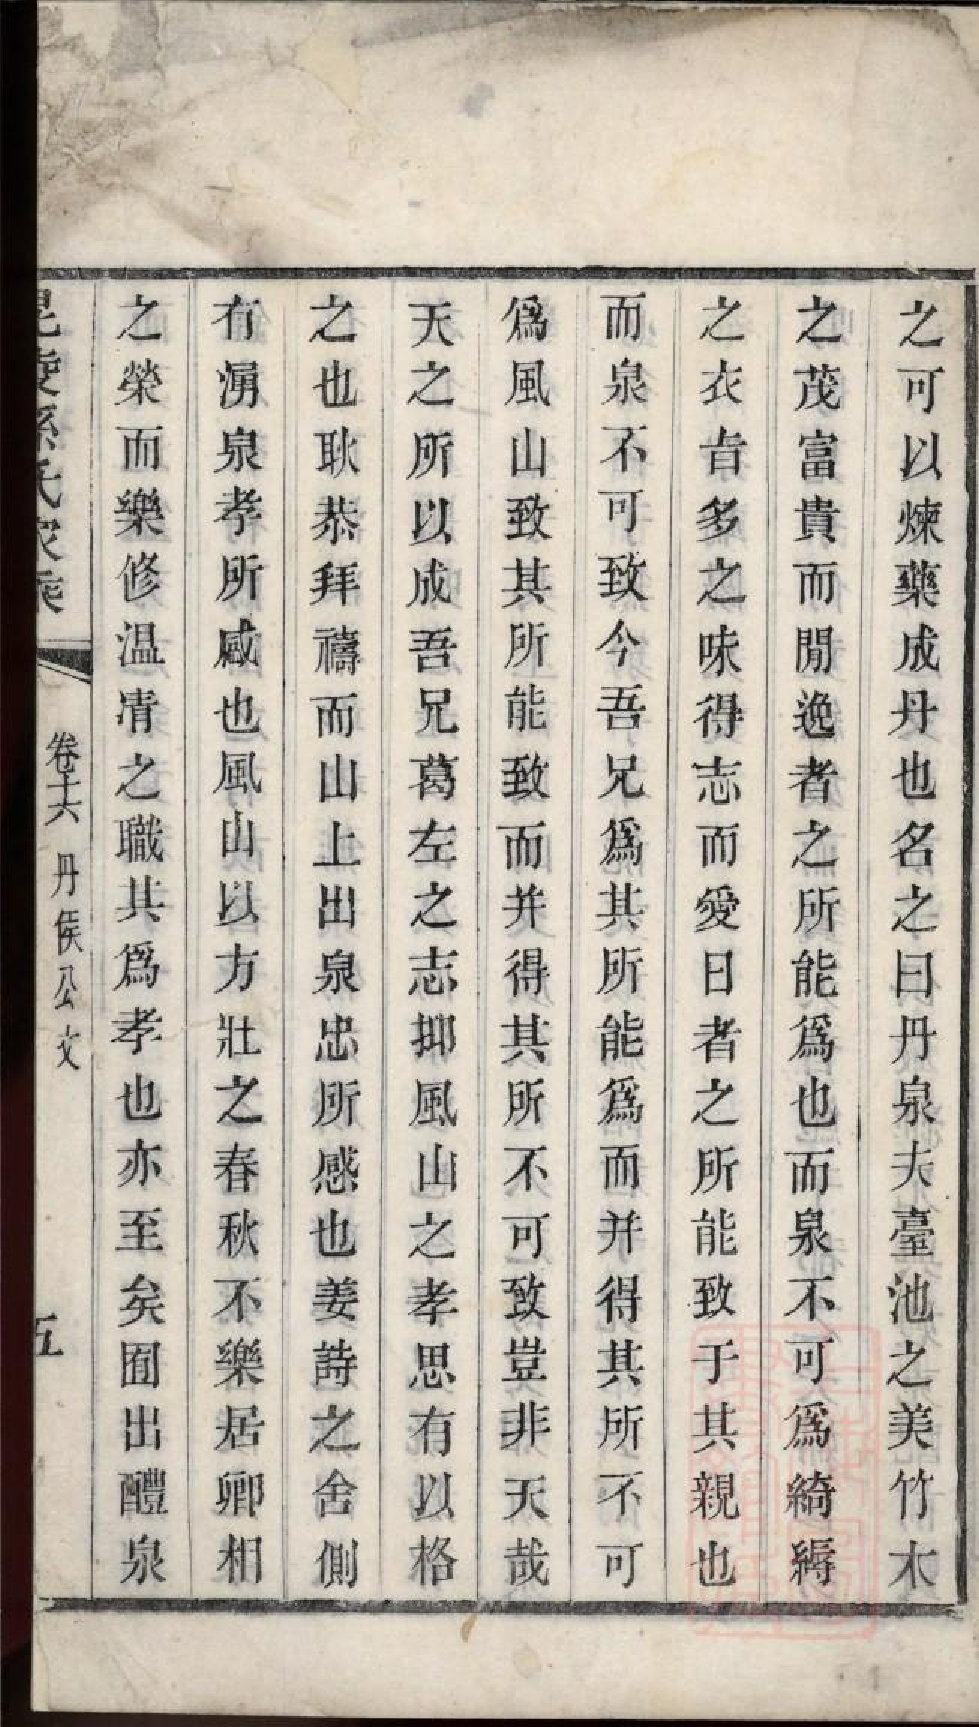 之可以煉藥成丹也名之曰丹泉夫臺池之美竹木
之茂富貴而閒逸者之所能爲也而泉不可爲綺縟
之衣旨多之味得志而愛日者之所能致于其親也
而泉不可致今吾兄爲其所能爲而并得其所不可
爲風山致其所能致而并得其所不可致豈非天哉
天之所以成吾兄葛左之志抑風山之孝思有以格
之也耿恭拜禱而山上出泉忠所感也姜詩之舍側
有湧泉孝所感也風山以方壯之春秋不樂居卿相
之榮而樂修温凊之職其爲孝也亦至矣囿出醴泉
毘陵孫氏家乘
卷十六 丹侯公文
五